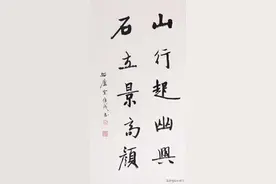 山行起幽興
石立景高顏